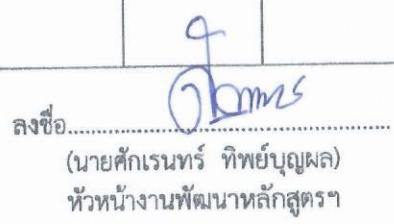 ลงชื่อ......................................................
(นายศักเรนทร์ ทิพย์บุญผล)
หัวหน้างานพัฒนาหลักสูตรฯ